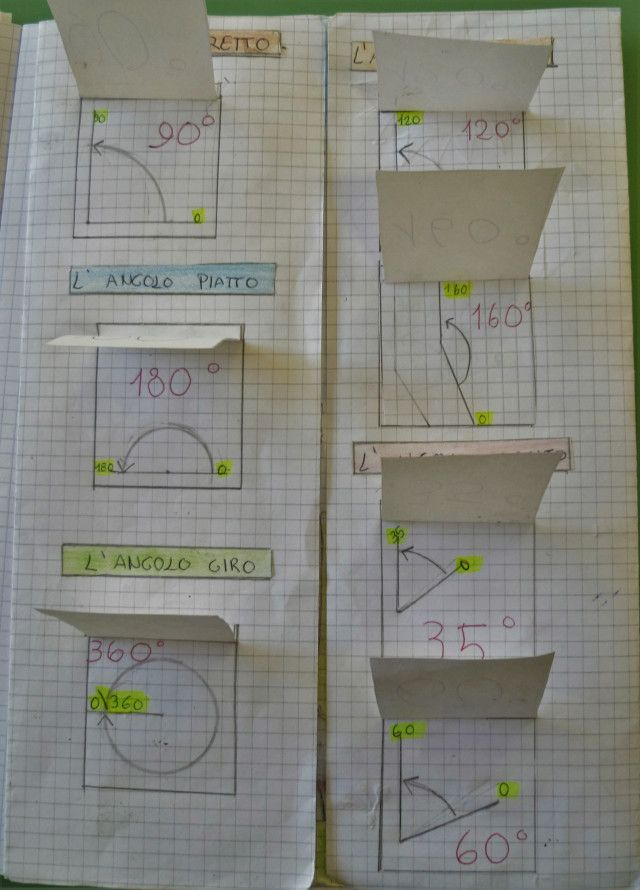 RETTO.
90
90°
0
L'ANGOLO PIATTO
180°
180
0
L'ANGOLO GIRO
360°
0 360
L'
120
120°
160
160°
0
L'
35
0
35°
60
0
60°